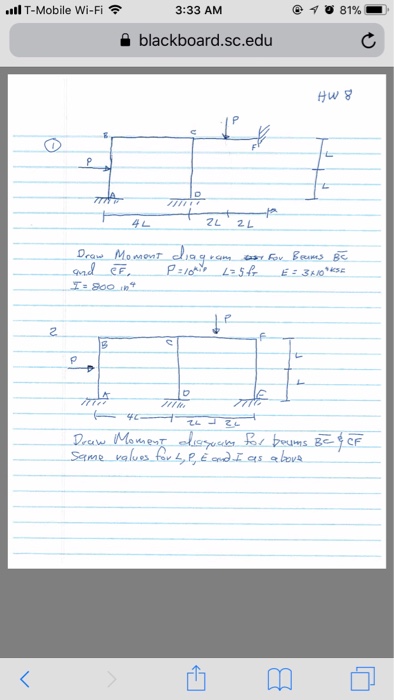 T-Mobile Wi-Fi 3:33 AM 81%
blackboard.sc.edu
HW 8
1
P
B C F
P
L
A D
L
4L 2L 2L
Draw Moment diagram for Beams BC
and CF. P=10kips L=5ft E=3x10⁴ksi
I=800 in⁴
2
P
B C F
P
L
A D E
L
4L 2L 2L
Draw Moment diagram for beams BC & CF
Same values for L, P, E and I as above